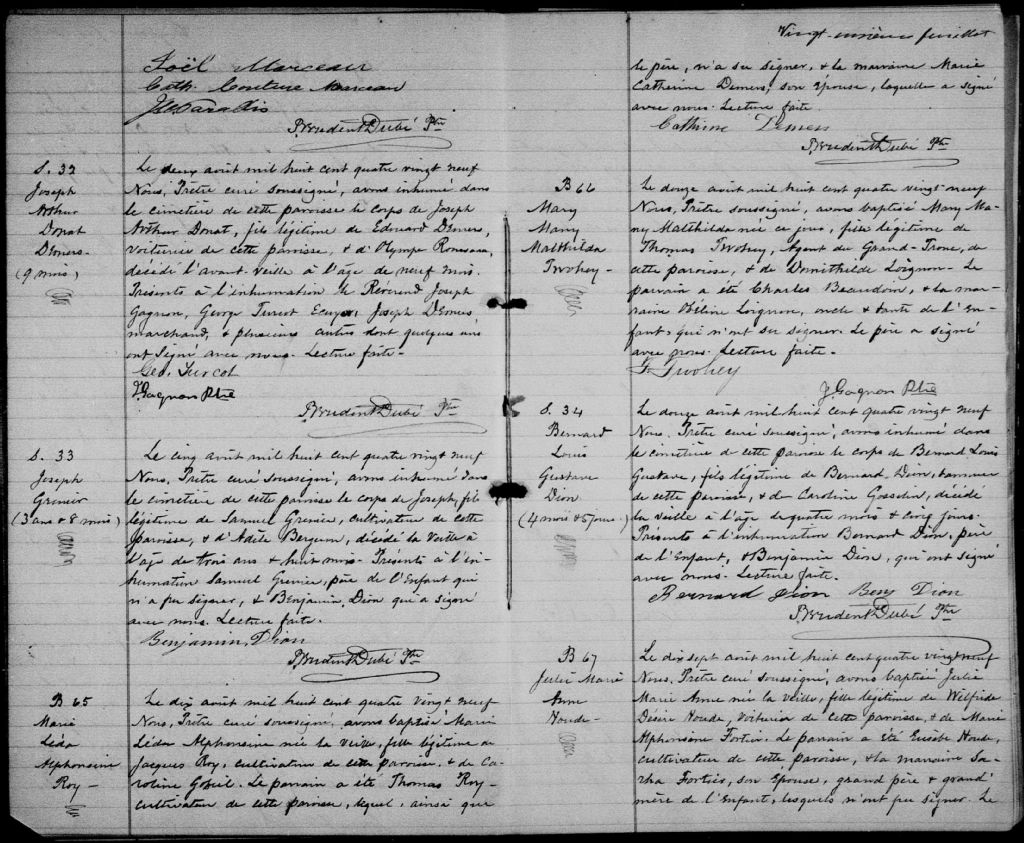 Joël Marceau
Cath. Couture Marceau
Prudent Dubé Ptre
S. 32
Joseph
Arthur
Donat
Demers-
(9 mois)
Le deux août mil huit cent quatre vingt neuf
Nous, Prêtre curé soussigné, avons inhumé dans
le cimetière de cette paroisse le corps de Joseph
Arthur Donat, fils légitime de Edouard Demers,
voiturier de cette paroisse, & d'Olympe Rousseau,
décédé l'avant-veille à l'âge de neuf mois.
Présents à l'inhumation le Révérend Joseph
Gagnon, George Turcot Ecuyer, Joseph Demers
marchand, & plusieurs autres dont quelques uns
ont signé avec nous. Lecture faite-
Geo. Turcot
J. Gagnon Ptre
Prudent Dubé Ptre
S. 33
Joseph
Grenier
(3 ans & 8 mois)
Le cinq août mil huit cent quatre vingt neuf
Nous, Prêtre curé soussigné, avons inhumé dans
le cimetière de cette paroisse le corps de Joseph, fils
légitime de Samuel Grenier, cultivateur de cette
paroisse, & d'Adèle Bergeron, décédé la veille à
l'âge de trois ans & huit mois. Présents à l'in-
humation Samuel Grenier, père de l'Enfant qui
n'a pu signer, & Benjamin Dion qui a signé
avec nous. Lecture faite.
Benjamin Dion
Prudent Dubé Ptre
B 65
Marie
Léda
Alphonsine
Roy-
Le dix août mil huit cent quatre vingt neuf
Nous, Prêtre curé soussigné, avons baptisé Marie
Léda Alphonsine née la veille, fille légitime de
Jacques Roy, cultivateur de cette paroisse, & de Ca-
roline Gosselin. Le parrain a été Thomas Roy-
cultivateur de cette paroisse, lequel, ainsi que
Vingt-unième feuillet
le père, n'a su signer, & la marraine Marie
Catherine Demers, son épouse, laquelle a signé
avec nous. Lecture faite.
Catherine Demers
Prudent Dubé Ptre
B 66
Mary
Many
Malthilda
Twohey-
Le douze août mil huit cent quatre vingt-neuf
Nous, Prêtre soussigné, avons baptisé Mary Ma-
ny Malthilda née ce jour, fille légitime de
Thomas Twohey, Agent du Grand-Tronc, de
cette paroisse, & de Domithilde Loignon- Le
parrain a été Charles Beaudoin, & la mar-
raine Héline Loignon, oncle & tante de l'En-
fant qui n'ont su signer. Le père a signé
avec nous. Lecture faite.-
T. Twohey
J. Gagnon Ptre
S. 34
Bernard
Louis
Gustave
Dion
(4 mois & 5 jours.)
Le douze août mil huit cent quatre vingt neuf
Nous, Prêtre curé soussigné, avons inhumé dans
le cimetière de cette paroisse le corps de Bernard Louis
Gustave, fils légitime de Bernard Dion, tanneur
de cette paroisse, & de Caroline Gosselin, décédé
la veille à l'âge de quatre mois & cinq jours.
Présents à l'inhumation Bernard Dion, père
de l'Enfant, & Benjamin Dion, qui ont signé
avec nous. Lecture faite.
Bernard Dion Benj Dion
Prudent Dubé Ptre
B 67
Julie Marie
Anne
Houde-
Le dix sept août mil huit cent quatre vingt neuf
Nous, Prêtre curé soussigné, avons baptisé Julie
Marie Anne née la veille, fille légitime de Wilfride
Désiré Houde, voiturier de cette paroisse, & de Marie
Alphonsine Fortier. Le parrain a été Eusèbe Houde,
cultivateur de cette paroisse, & la marraine Sa-
rha Fortier, son Epouse, grand'père & grand'
mère de l'Enfant, lesquels n'ont pu signer. Le